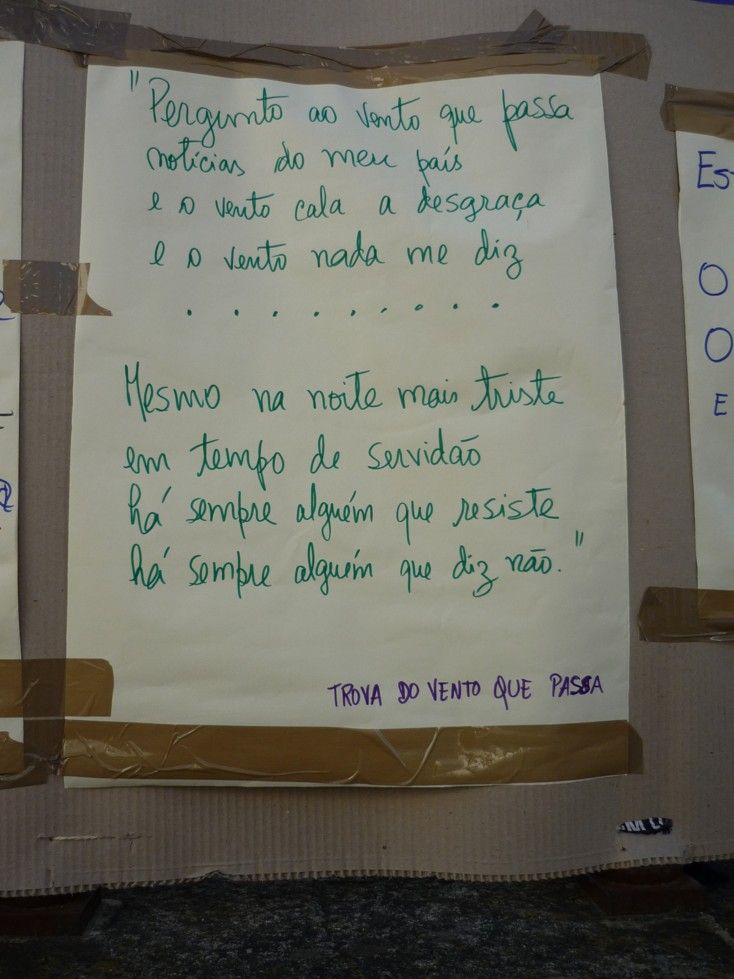 "Pergunto ao vento que passa
notícias do meu país
e o vento cala a desgraça
e o vento nada me diz
. . . . . . . . .
Mesmo na noite mais triste
em tempo de servidão
há sempre alguém que resiste
há sempre alguém que diz não."
TROVA DO VENTO QUE PASSA
Es
O
O
E